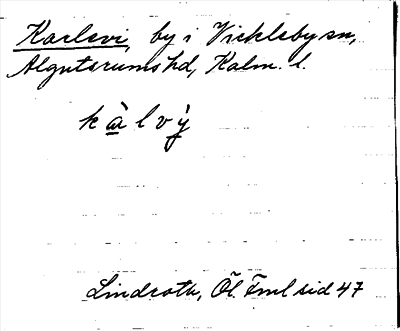 Karlevi, by i Vickleby sn,
Algutsrums hd, Kalm. l.
kàlvỳ
Lindroth, Öl. Fml sid 47